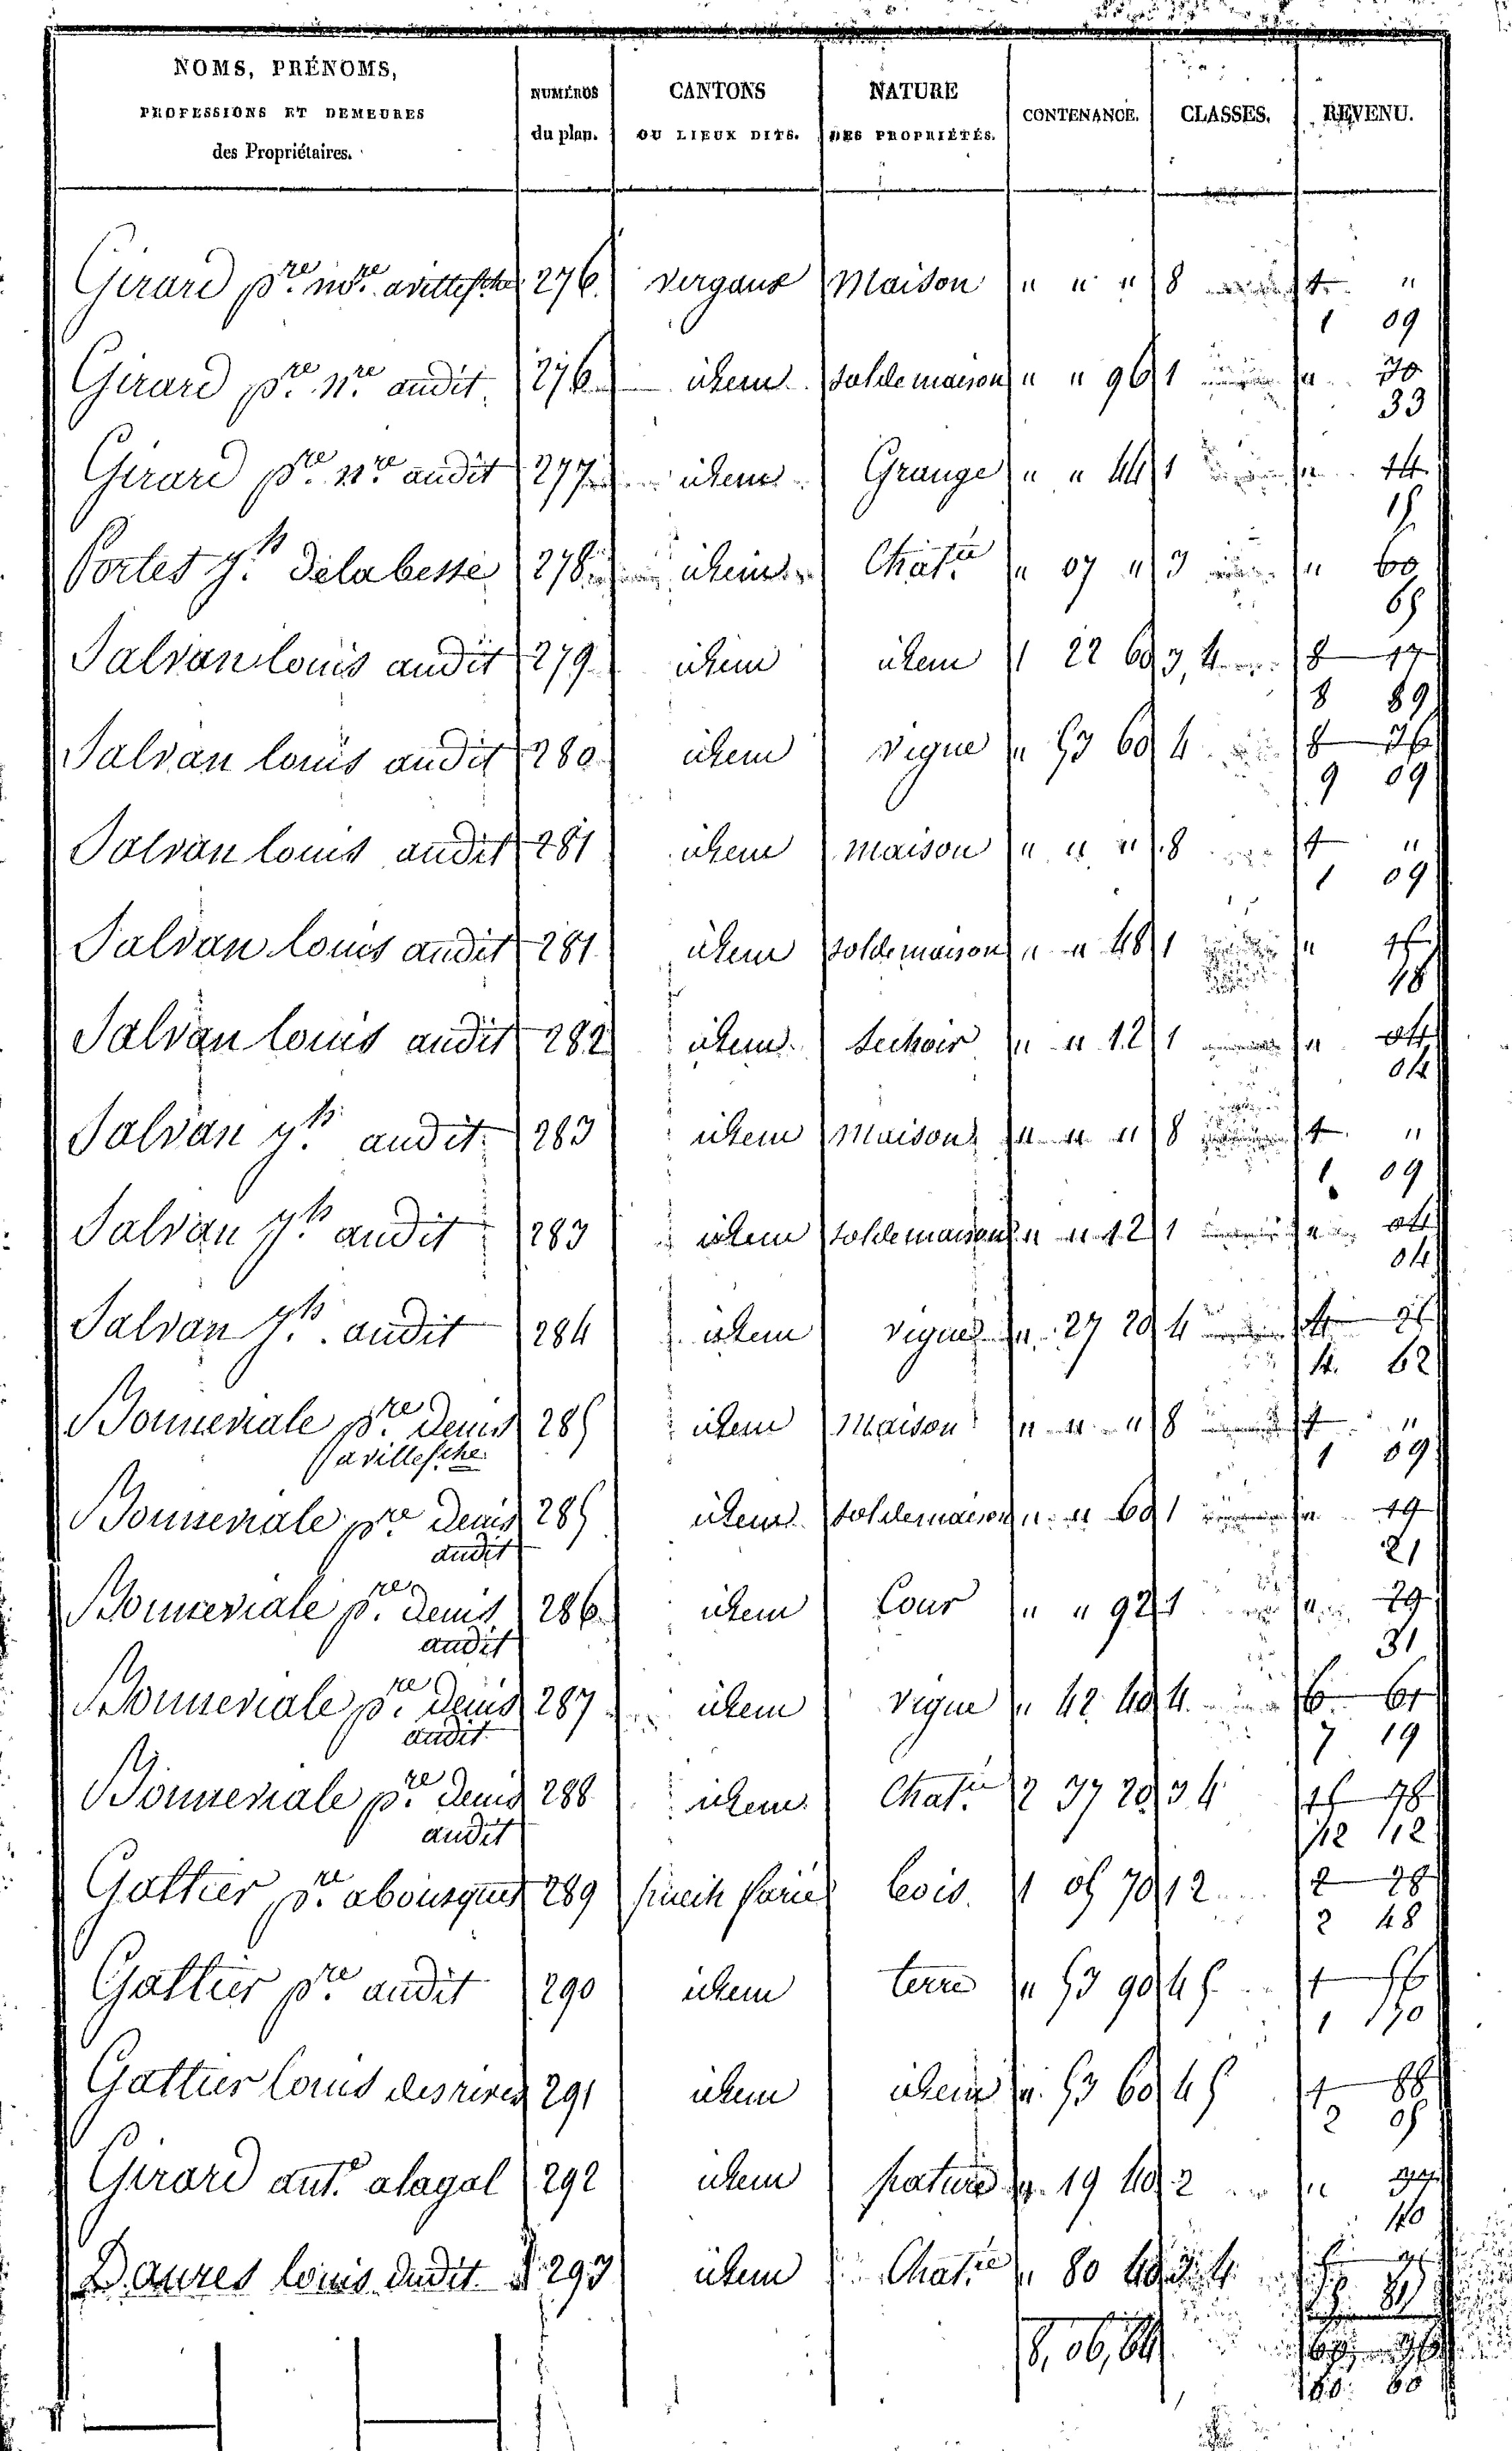 NOMS, PRÉNOMS, PROFESSIONS ET DEMEURES des Propriétaires. | NUMÉROS du plan. | CANTONS OU LIEUX DITS. | NATURE DES PROPRIÉTÉS. | CONTENANCE. | CLASSES. | REVENU.
Girard pre nre avillefche 276 vergaus Maison " " " 8 1 "
1 09
Girard pre nre audit 276 idem sol de maison " " 96 1 " 30
33
Girard pre nre audit 277 idem Grange " " 44 1 " 14
15
Portes jh delabesse 278 idem Chatre " 07 " 3 " 60
65
Salvan louis audit 279 idem idem 1 22 60 3, 4 8 17
8 89
Salvan louis audit 280 idem vigne " 53 60 4 8 36
9 09
Salvan louis audit 281 idem maison " " " 8 1 "
1 09
Salvan louis audit 281 idem sol de maison " " 48 1 " 15
16
Salvan louis audit 282 idem sechoir " " 12 1 " 04
04
Salvan jh audit 283 idem Maison " " " 8 1 "
1 09
Salvan jh audit 283 idem sol de maison " " 12 1 " 04
04
Salvan jh audit 284 idem vigne " 27 20 4 4 25
4 62
Bonneviale pre denis 285 idem Maison " " " 8 1 "
avillefche 1 09
Bonneviale pre denis 285 idem sol de maison " " 60 1 " 19
audit 21
Bonneviale pre denis 286 idem Cour " " 92 1 " 29
audit 31
Bonneviale pre denis 287 idem vigne " 42 40 4 6 61
audit 7 19
Bonneviale pre denis 288 idem Chatre 2 37 20 3 4 78
audit 12
Galtier pre abousquet 289 bois 1 05 70 1 2 2 28
2 48
Galtier pre audit 290 idem terre " 53 90 4 5 1 56
1 70
Galtier louis desrives 291 idem idem " 53 60 4 5 1 88
2 05
Girard ante alagal 292 idem pature " 19 40 2 " 37
40
Daures louis dudit 293 idem Chatre " 80 40 3 4
8, 06, 64
60